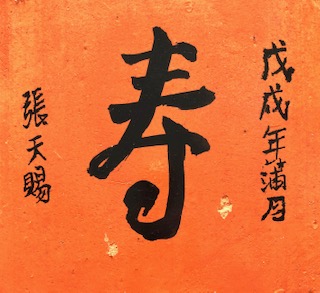 戊戌年蒲月
寿
張天賜